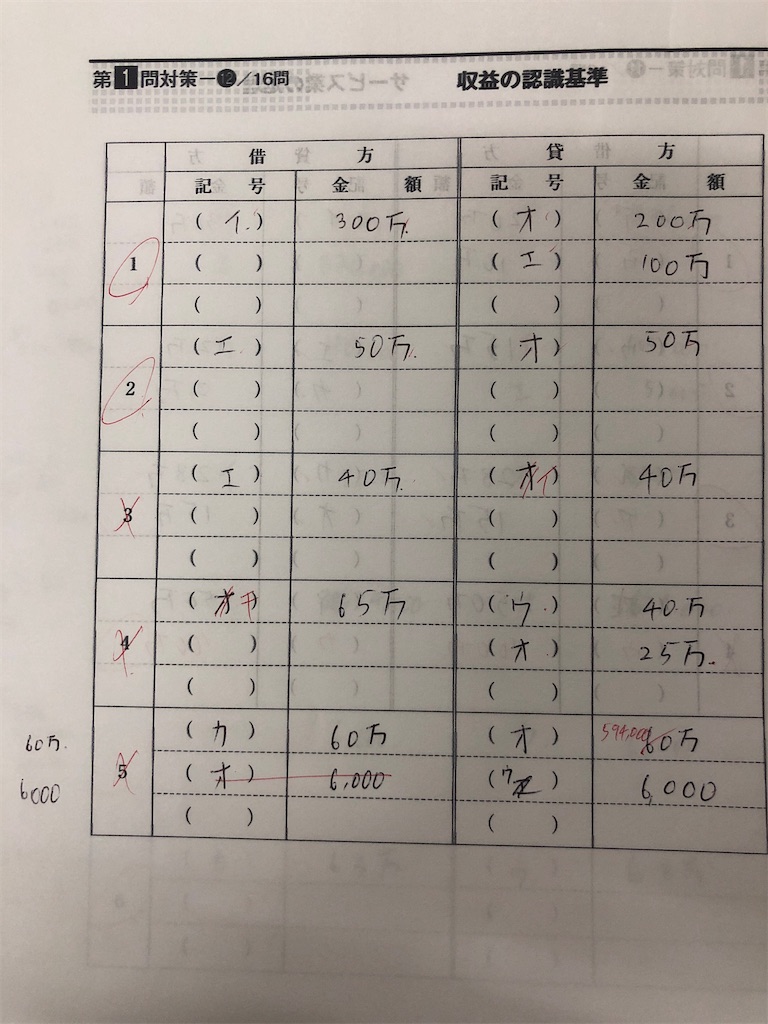 第1問対策－⑫／16問 収益の認識基準
借 方 貸 方
記 号 金 額 記 号 金 額
1 (イ.) 300万. (オ) 200万
( ) (エ) 100万
( ) ( )
2 (エ.) 50万. (オ) 50万
( ) ( )
( ) ( )
3 (エ) 40万. (オイ) 40万
( ) ( )
( ) ( )
4 (オキ) 65万 (ウ.) 40万
( ) (オ.) 25万.
( ) ( )
5 (カ) 60万 (オ) 594,000 60万
60万.
(オ) 6,000 (ウ) 6,000
6000
( ) ( )